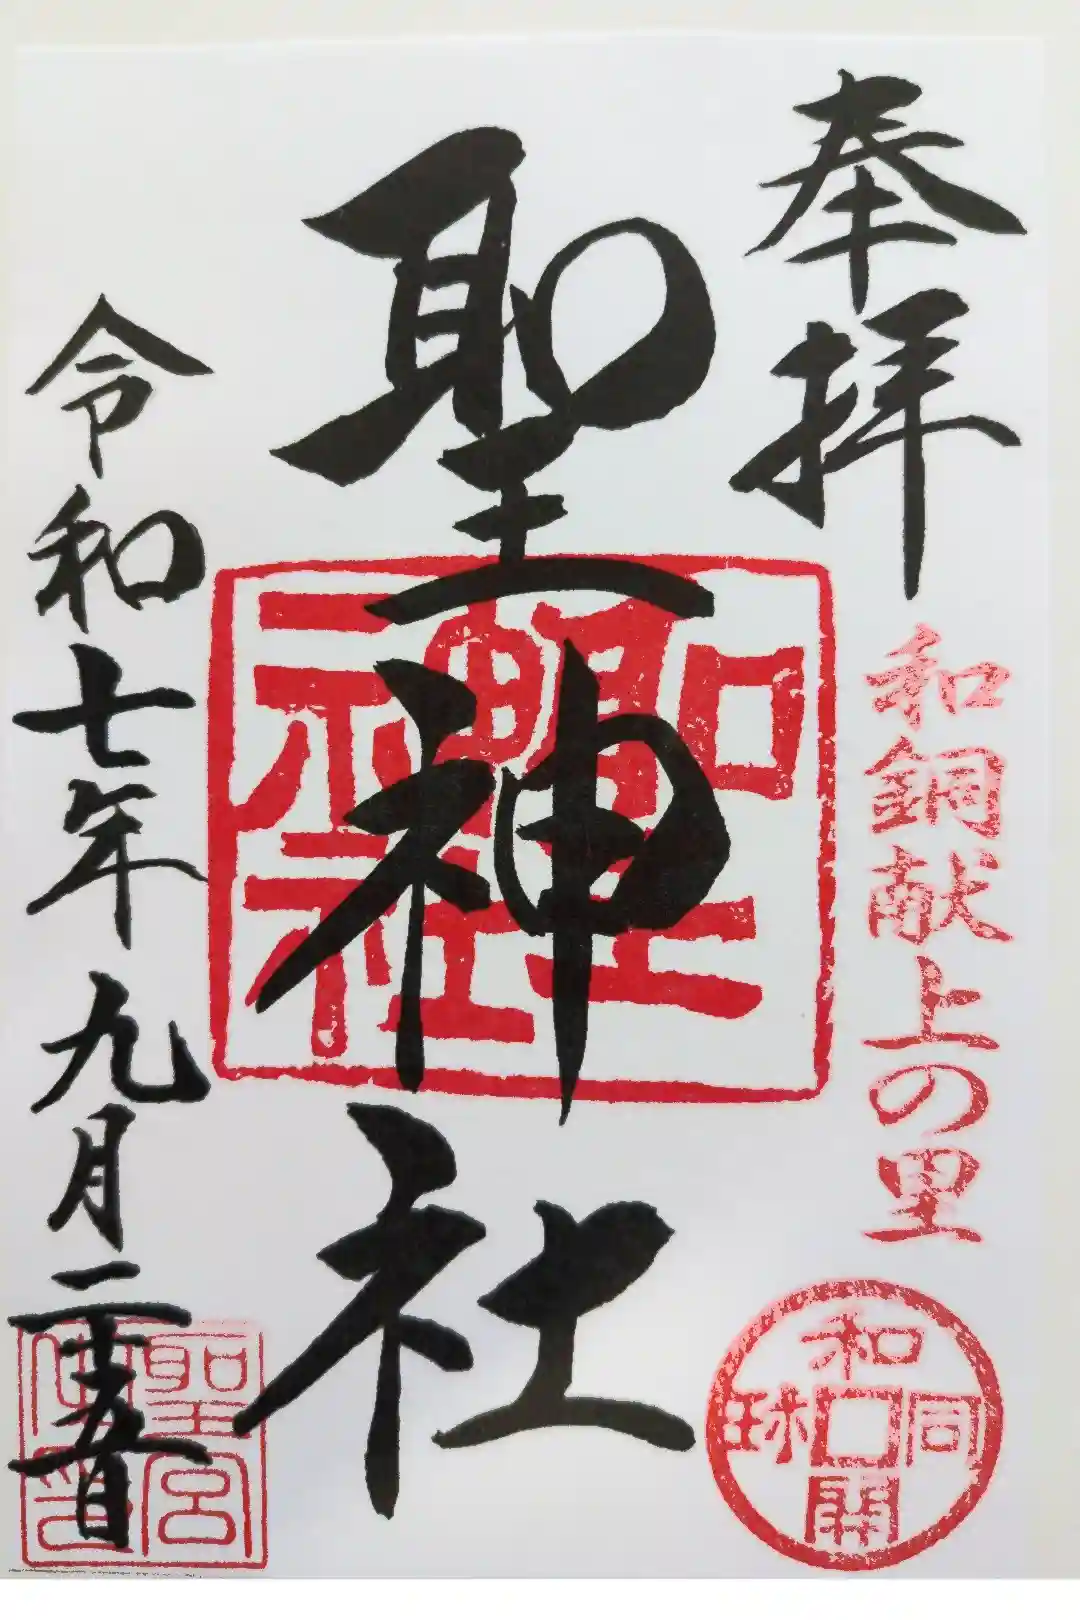 奉拝
和銅献上の里
和同開珎
聖神社
聖神社
令和七年九月二十五日